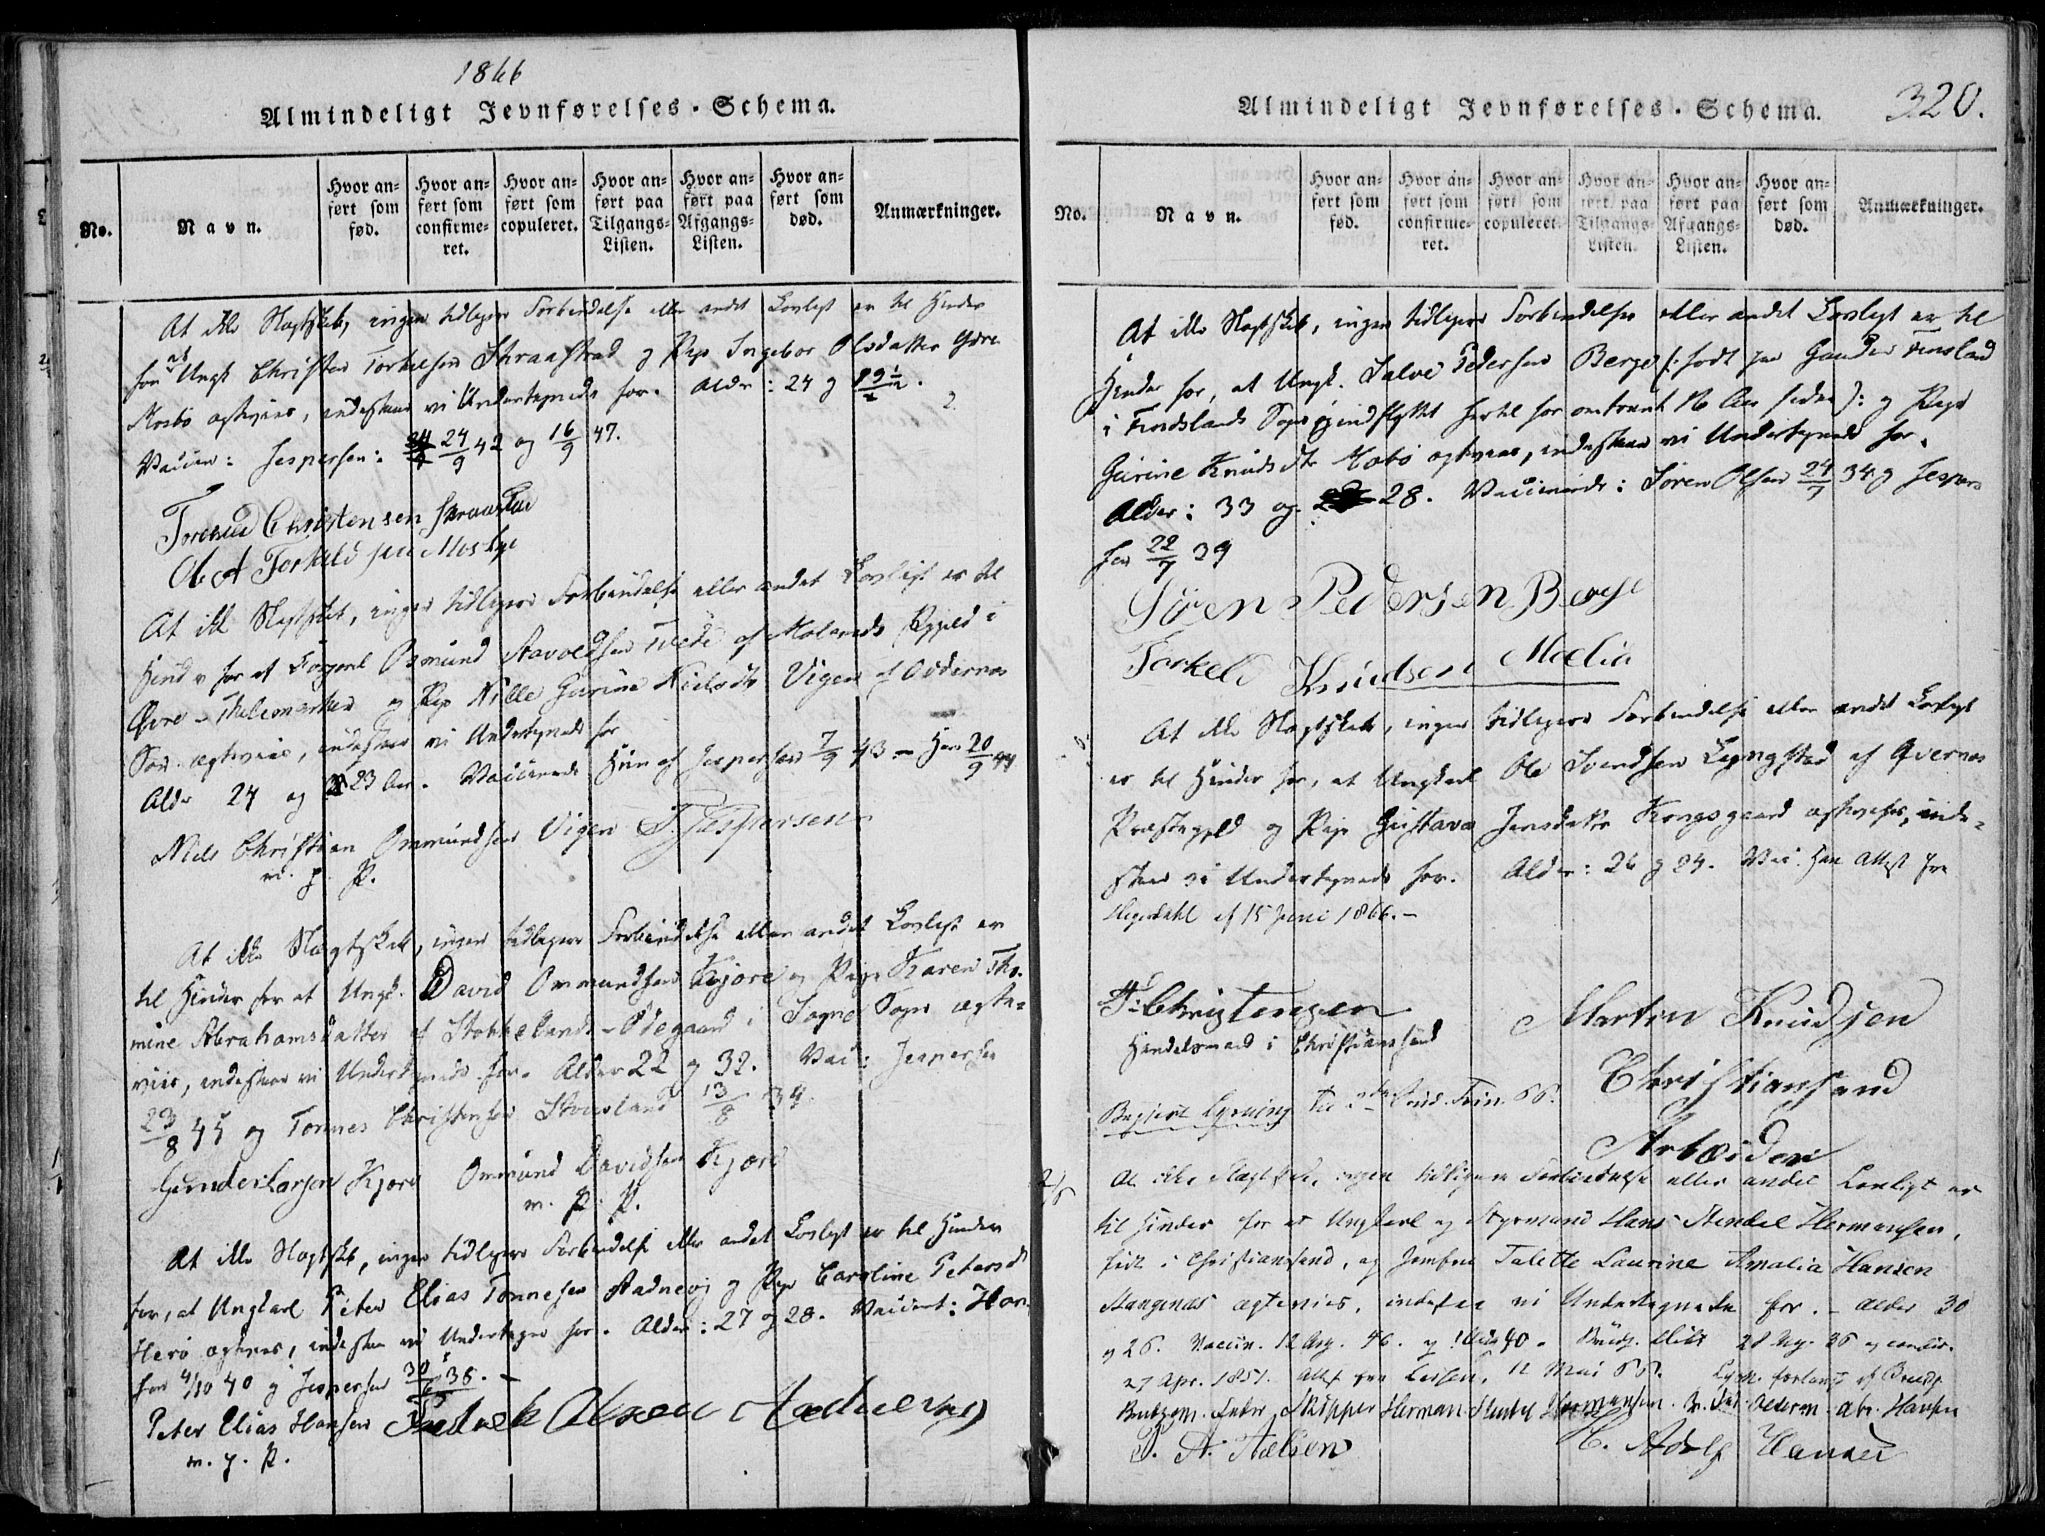 1866
Almindeligt Jevnførelses-Schema.
No.
Navn.
Hvor an-
ført som
fød.
Hvor an-
ført som
confirme-
ret.
Hvor an-
ført som
copuleret.
Hvor an-
ført paa
Tilgangs-
Listen.
Hvor an-
ført paa
Afgangs-
Listen.
Hvor an-
ført som
død.
Anmærkninger.
At ikke Slægtskab, ingen tidligere Forbindelse eller andet Lovligt er til Hinder
for at Ungk Christen Torkelsen Straastad og Pige Ingebor Olsdatter
Mosbø ægtevies, indestaar vi Undertegnede for. Alder: 24 og
Vaccin: Jespersen: 24/9 42 og 16/9 47.
Torkild Christensen
O. A Torkildsen Mosbye
At ikke Slægtskab, ingen tidligere Forbindelse eller andet Lovligt er til
Hinder for at Ungkarl Osmund Aavoldsen Tvede af Molands Pgjeld i
Øvre-Thelemarken og Pige Nille Gurine Nielsdtr Vigen af Oddernes
Sogn ægtevies, indestaar vi Undertegnede for
Alder 24 og 23 Aar. Vaccinerede Hun af Jespersen 7/9 43 - Han 20/9 44
Niels Christian Ommundsen Vigen J. Jespersen
m. p. P.
At ikke Slægtskab, ingen tidligere Forbindelse eller andet Lovligt er
til Hinder for at Ungk. David Ommundsen Kjøre og Pige Karen Tho-
mine Abrahamsdatter af Stokkelands-Ødegaard i Søgne Sogn ægte-
vies, indestaar vi Undertegnede for. Alder 22 og 32. Vac: Jespersen
23/8 45 og Tønnes Christensen 13/8 34.
Gunder Larsen Kjøre Ommund Davidsen Kjøre
m. p. P.
At ikke Slægtskab, ingen tidligere Forbindelse eller andet Lovligt er til Hinder
for, at Ungkarl Peter Elias Tønnesen Aadnevig og Pige Caroline Petersd
Herø ægtevies, indestaar vi Undertegnede for. Alder: 27 og 28. Vaccinert:
4/10 40 og Jespersen 38. -
Peter Elias Hansen Fredrik Olsen Aadnevig
m. p. P.
Almindeligt Jevnførelses-Schema.
320.
No.
Navn.
Hvor an-
ført som
fød.
Hvor an-
ført som
confirme-
ret.
Hvor an-
ført som
copuleret.
Hvor an-
ført paa
Tilgangs-
Listen.
Hvor an-
ført paa
Afgangs-
Listen.
Hvor an-
ført som
død.
Anmærkninger.
At ikke Slægtskab, ingen tidligere Forbindelse eller andet Lovligt er til
Hinder for, at Ungk. Salve Pedersen Berge (: født paa
i Findslands Sogn indflyttet hertil for omtrent 16 Aar siden :) og Pige
Gurine Knudsdtr ægtevies, indestaar vi Undertegnede for.
Alder: 33 og 28. Vaccinerede: Søren Olsen 24/7 34 og Jesper-
sen 22/7 39
Søren Pedersen Berge
Torkeld Knudsen Moelia
At ikke Slægtskab, ingen tidligere Forbindelse eller andet Lovligt
er til Hinder for, at Ungkarl Ole Svendsen Lyngstad af Qvernes
Præstegjeld og Pige Gustava Jensdatter Kongsgaard ægtevies, inde-
staar vi Undertegnede for. Alder: 26 og 24. Vac. Han Attest fra
af 15 Juni 1866. -
T. Christensen
Handelsmand i Christianssand
Martin Knudsen
Christiansand
Arbeider
Begjert Lysning til 2den Sønd. Trin. 66.
At ikke Slægtskab, ingen tidligere Forbindelse eller andet Lovligt er
til Hinder for at Ungkarl og Styrmand Hans Stendel Hermansen,
født i Christianssand, og Jomfru Talette Laurine Amalia Hansen
Stangenæs ægtevies, indestaa vi Undertegnede for. - Alder 30
og 26. Vaccin. 12 Aug. 46. og 40.
27 Apr. 1851. Attest fra 12 Mai 66. Lysn. forlangt af Brudg.
Brudgom. Fader Skipper Herman Stendel Hermansen. Hansen
P. A. Nielsen
C. Adolf Hansen